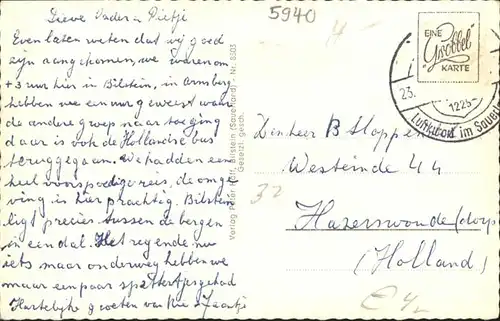 5940
Lieve Vader & Pietje
Even laten weten dat wij goed
zijn aangekomen, we waren om
+ 3 uur hier in Bilstein, in Arnsberg
hebben we een uur geweest want
de andere groep naar toe ging
daar is ook de Hollandse bus
teruggegaan. We hadden een
heel voorspoedige reis, de omge
ving is hier prachtig. Bilstein
ligt precies tussen de bergen
in een dal. Het regende nu
iets maar onderweg hebben we
maar een paar spettertjes gehad
Hartelijke groeten van Rie & Jaantje
Verlag Peter Bilstein (Sauerland) Nr. 8503
Gesetzl. gesch.
EINE
"Grobbel"
KARTE
23.
1225
Luftkurort im Sauer
Den heer B Stoppe
Westeinde 44
32
Hazerswoude (dorp
(Holland)